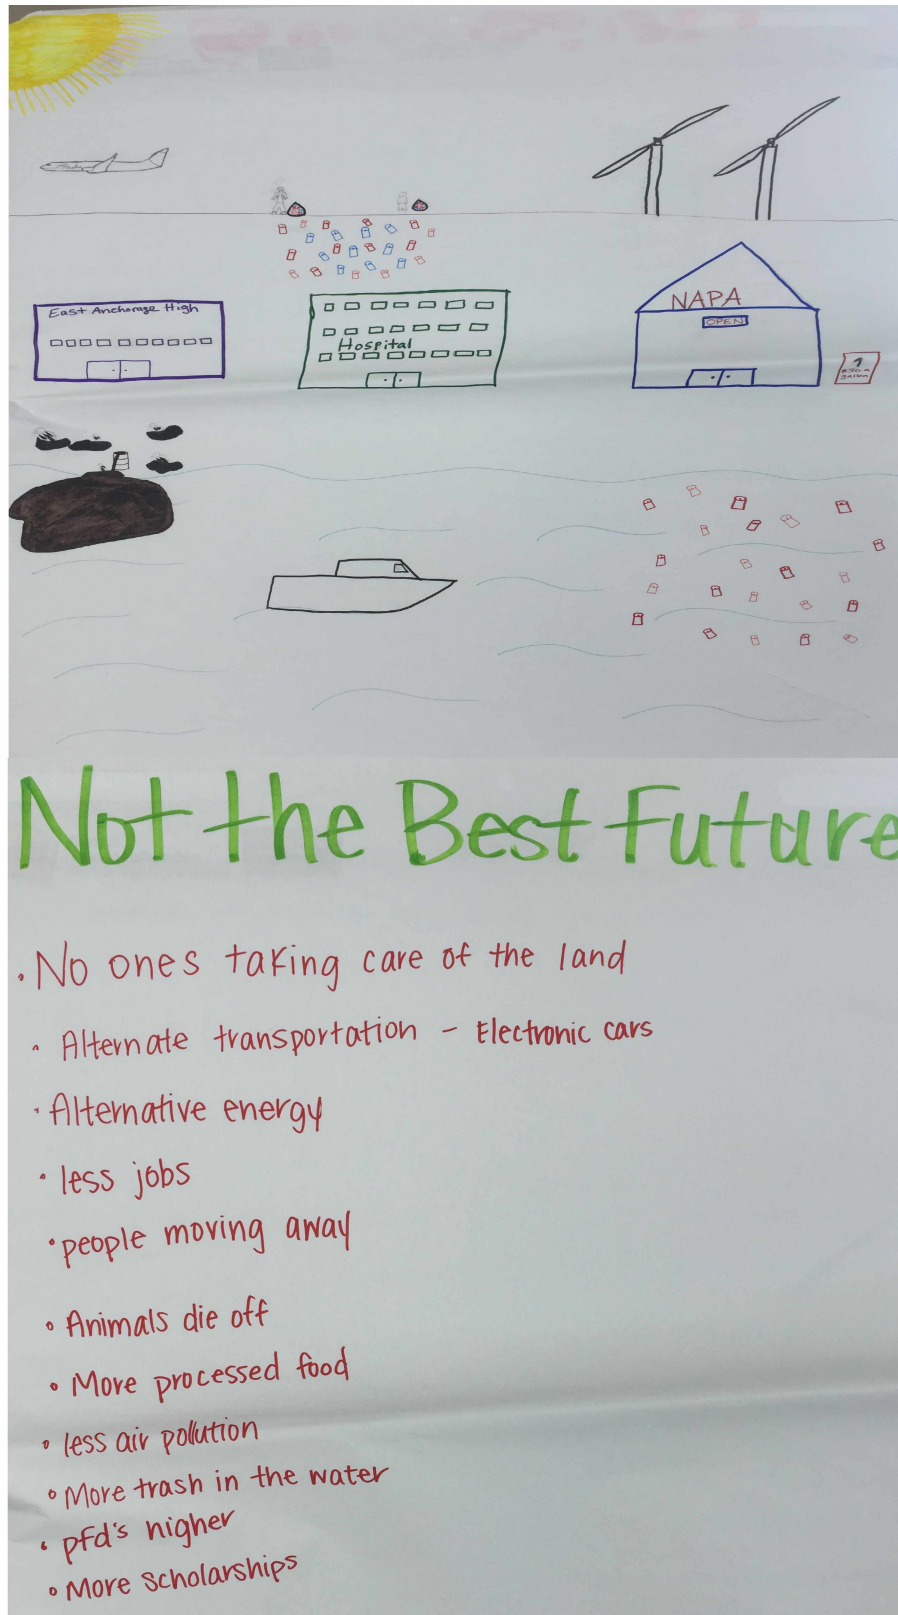 East Anchorage High
Hospital
NAPA
OPEN
gallon
Not the Best Future
. No ones taking care of the land
. Alternate transportation - Electronic cars
. Alternative energy
. less jobs
. people moving away
. Animals die off
. More processed food
. less air pollution
. More trash in the water
. pfd's higher
. More scholarships